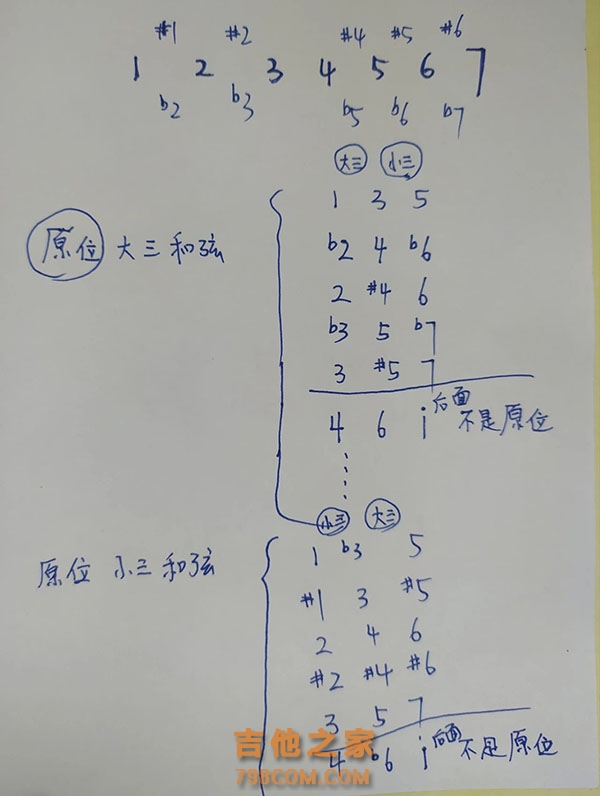 #1 #2 #4 #5 #6
1 2 3 4 5 6 7
b2 b3 b5 b6 b7
大三 小三
1 3 5
原位 大三和弦
b2 4 b6
2 #4 6
b3 5 b7
3 #5 7
4 6 i 后面不是原位
小三 大三
1 b3 5
原位 小三和弦
#1 3 #5
2 4 6
#2 #4 #6
3 5 7
4 b6 i 后面不是原位
吉他之家
798COM.COM